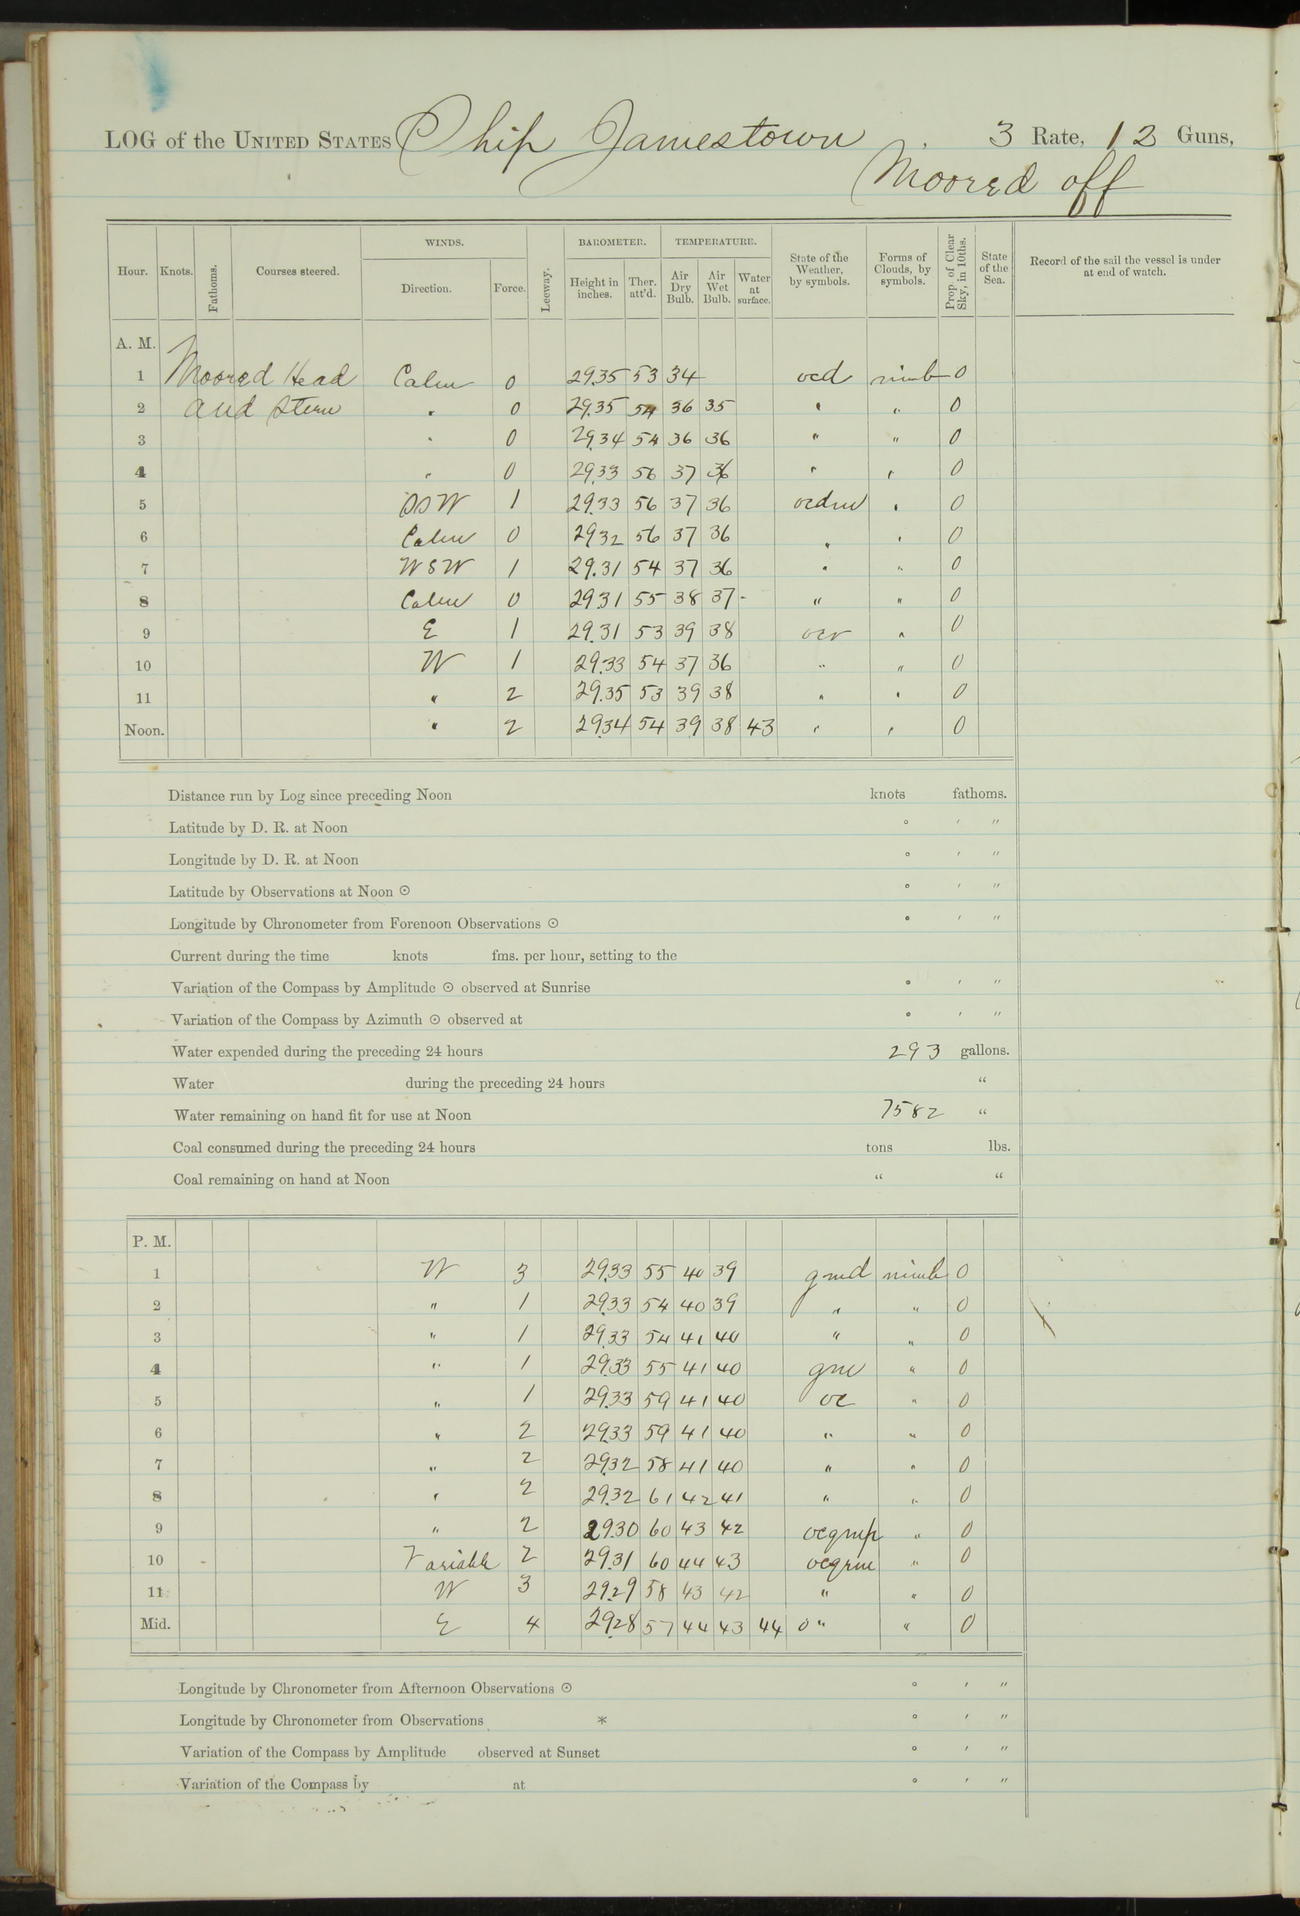 LOG of the UNITED STATES Ship Jamestown, 3 Rate, 12 Guns,
Moored off
Hour. Knots. Fathoms. Courses steered. WINDS. Direction. Force. Leeway. BAROMETER. Height in inches. Ther. att'd. TEMPERATURE. Air Dry Bulb. Air Wet Bulb. Water at surface. State of the Weather, by symbols. Forms of Clouds, by symbols. Prop. of Clear Sky, in 10ths. State of the Sea. Record of the sail the vessel is under at end of watch.
A. M.
1 Moored Head Calm 0 29.35 53 34 ocd nimb 0
2 and Stern " 0 29.35 54 36 35 " " 0
3 " 0 29.34 54 36 36 " " 0
4 " 0 29.33 56 37 36 " " 0
5 SSW 1 29.33 56 37 36 ocdm " 0
6 Calm 0 29.32 56 37 36 " " 0
7 WSW 1 29.31 54 37 36 " " 0
8 Calm 0 29.31 55 38 37 - " " 0
9 E 1 29.31 53 39 38 ocr " 0
10 W 1 29.33 54 37 36 " " 0
11 " 2 29.35 53 39 38 " " 0
Noon. " 2 29.34 54 39 38 43 " " 0
Distance run by Log since preceding Noon knots fathoms.
Latitude by D. R. at Noon ° ′ ″
Longitude by D. R. at Noon ° ′ ″
Latitude by Observations at Noon ⊙ ° ′ ″
Longitude by Chronometer from Forenoon Observations ⊙ ° ′ ″
Current during the time knots fms. per hour, setting to the
Variation of the Compass by Amplitude ⊙ observed at Sunrise ° ′ ″
Variation of the Compass by Azimuth ⊙ observed at ° ′ ″
Water expended during the preceding 24 hours 293 gallons.
Water during the preceding 24 hours "
Water remaining on hand fit for use at Noon 7582 "
Coal consumed during the preceding 24 hours tons lbs.
Coal remaining on hand at Noon " "
P. M.
1 W 3 29.33 55 40 39 gmd nimb 0
2 " 1 29.33 54 40 39 " " 0
3 " 1 29.33 54 41 40 " " 0
4 " 1 29.33 55 41 40 gm " 0
5 " 1 29.33 59 41 40 oc " 0
6 " 2 29.33 59 41 40 " " 0
7 " 2 29.32 58 41 40 " " 0
8 " 2 29.32 61 42 41 " " 0
9 " 2 29.30 60 43 42 ocgmp " 0
10 Variable 2 29.31 60 44 43 ocgrm " 0
11 W 3 29.29 58 43 42 " " 0
Mid. E 4 29.28 57 44 43 44 0 " " 0
Longitude by Chronometer from Afternoon Observations ⊙ ° ′ ″
Longitude by Chronometer from Observations * ° ′ ″
Variation of the Compass by Amplitude observed at Sunset ° ′ ″
Variation of the Compass by at ° ′ ″